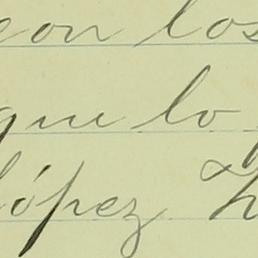 con los
que lo
López